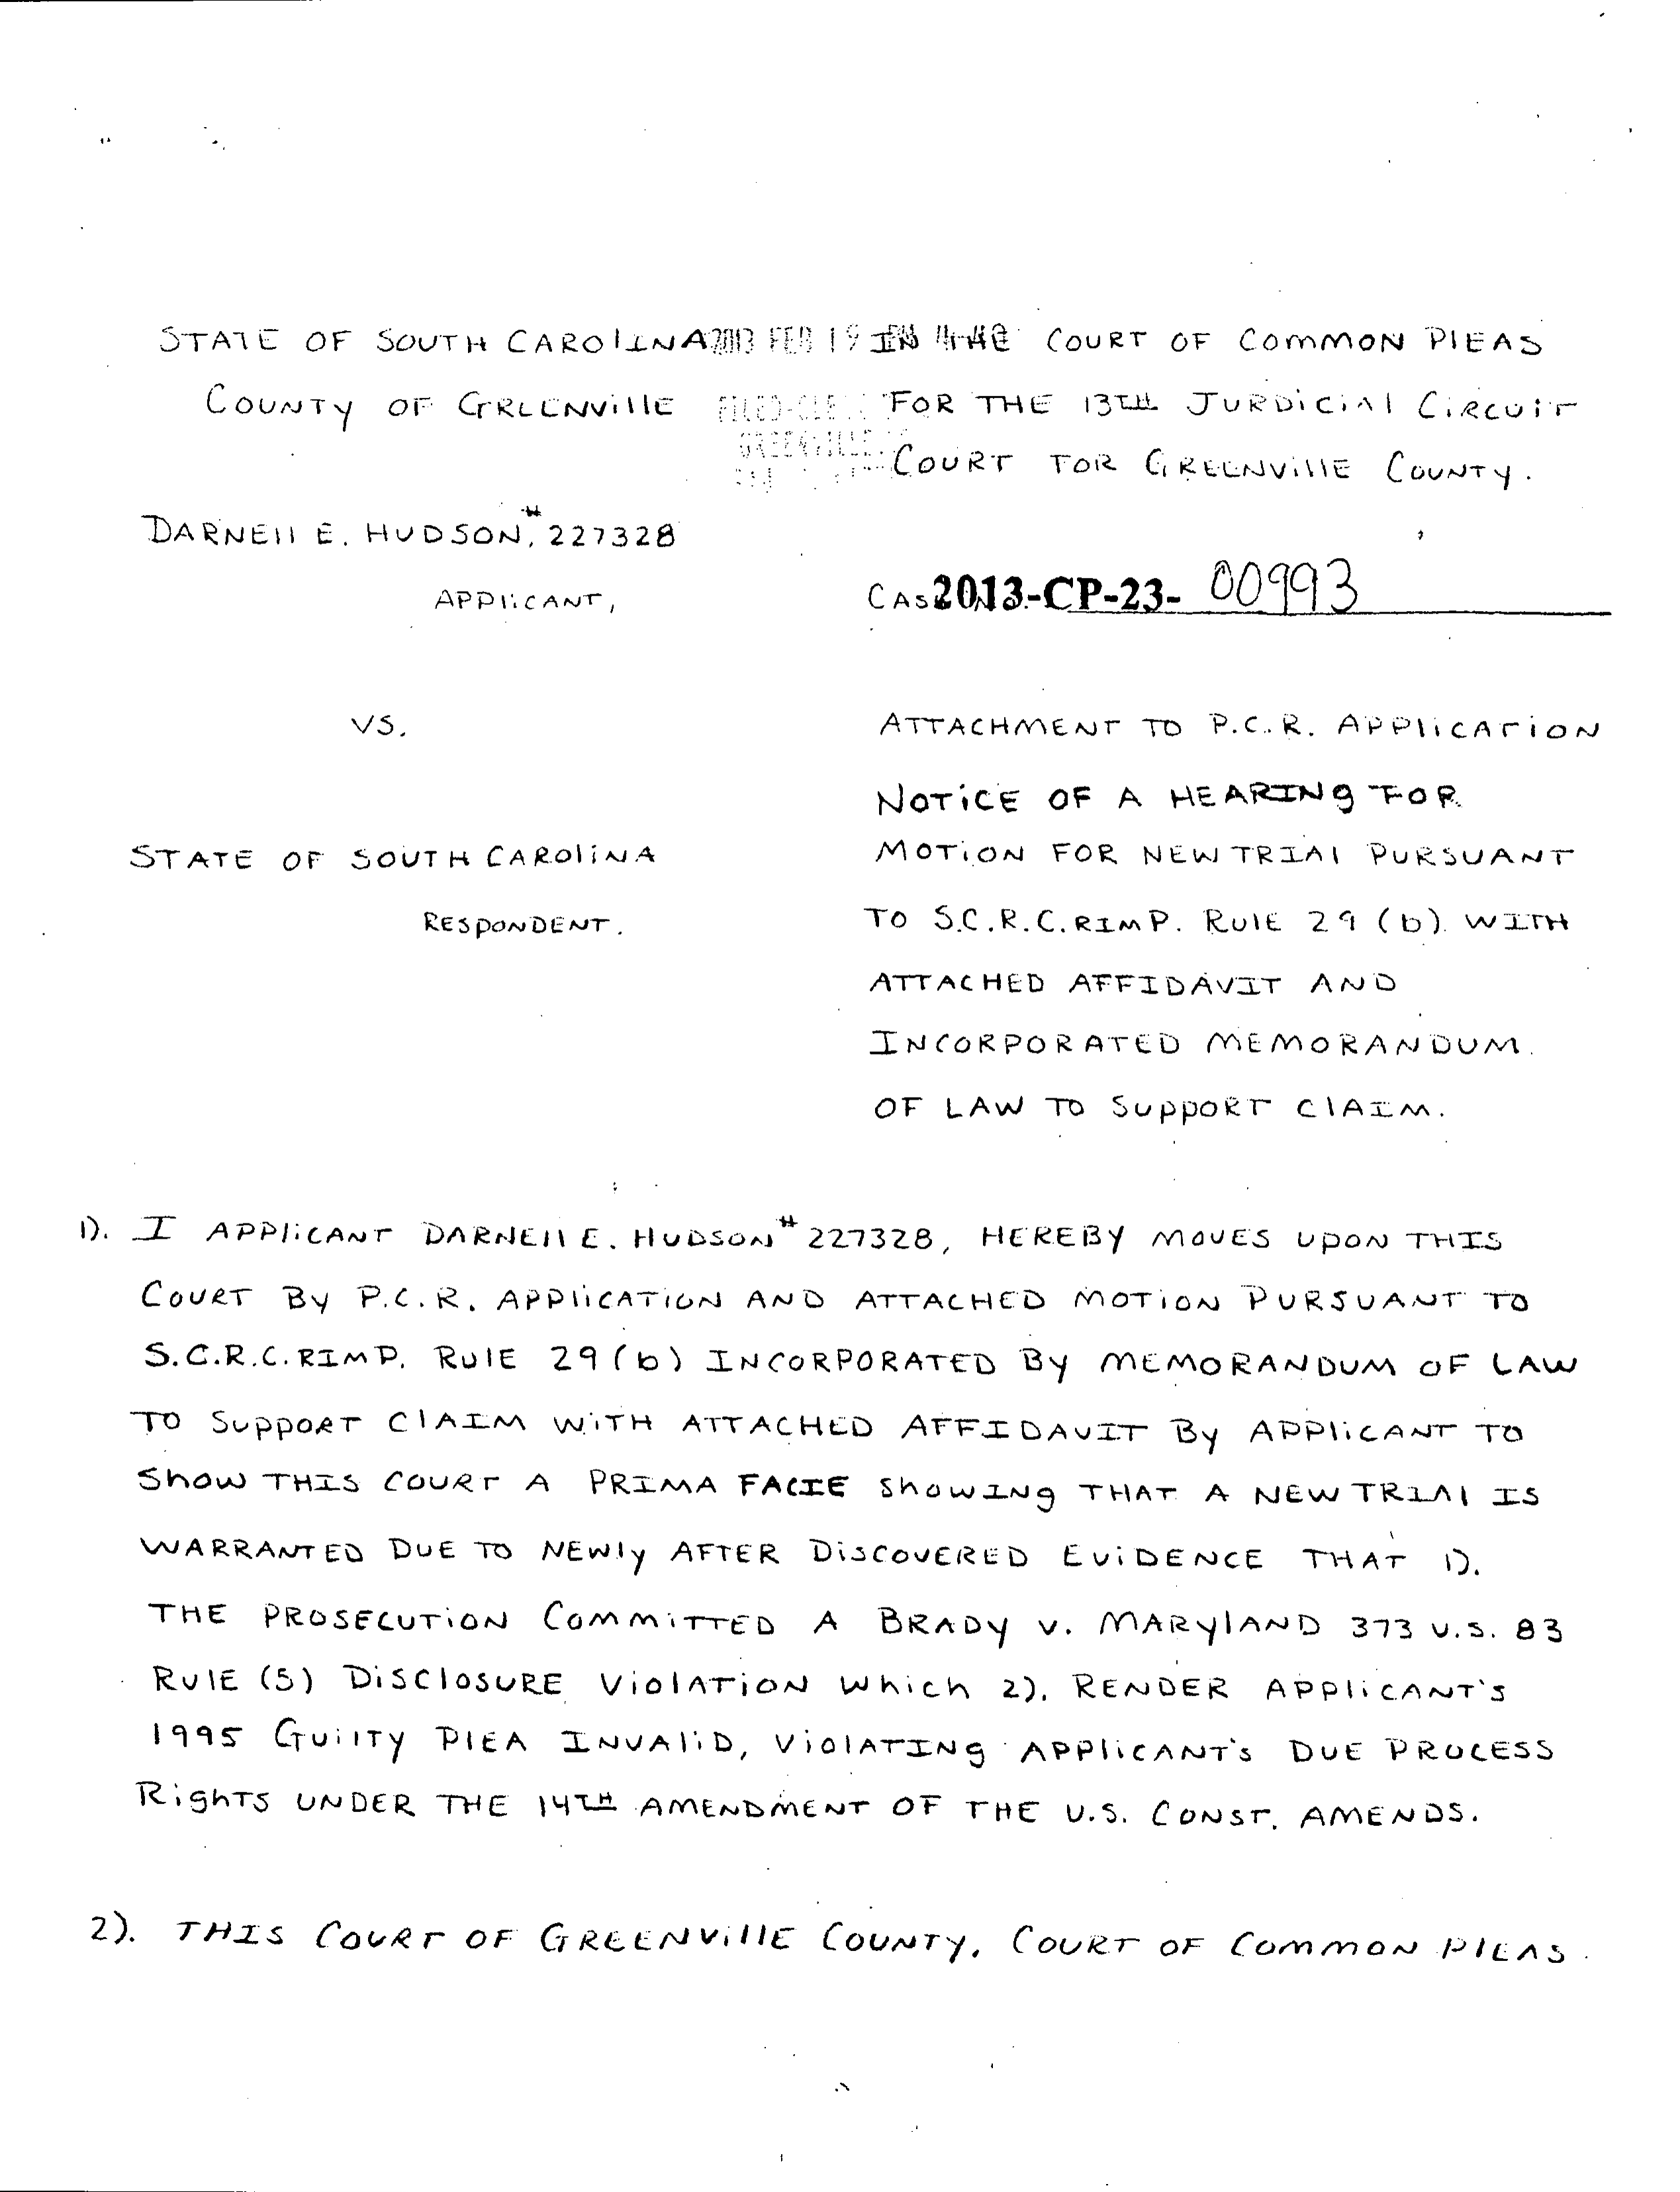 STATE OF SOUTH CAROLINA 2013 FEB 19 IN THE COURT OF COMMON PLEAS
COUNTY OF GREENVILLE FILED-CLE FOR THE 13TH JURDICIAL CIRCUIT
GREENVILLE COURT FOR GREENVILLE COUNTY.
DARNELL E. HUDSON, #227328
APPLICANT,
CAS 2013-CP-23- 00993
VS.
ATTACHMENT TO P.C.R. APPLICATION
NOTICE OF A HEARING FOR
STATE OF SOUTH CAROLINA
MOTION FOR NEW TRIAL PURSUANT
RESPONDENT.
TO S.C.R.C.RIMP. RULE 29 (b) WITH
ATTACHED AFFIDAVIT AND
INCORPORATED MEMORANDUM
OF LAW TO SUPPORT CLAIM.
1). I APPLICANT DARNELL E. HUDSON #227328, HEREBY MOVES UPON THIS
COURT BY P.C.R. APPLICATION AND ATTACHED MOTION PURSUANT TO
S.C.R.C.RIMP. RULE 29(b) INCORPORATED BY MEMORANDUM OF LAW
TO SUPPORT CLAIM WITH ATTACHED AFFIDAVIT BY APPLICANT TO
SHOW THIS COURT A PRIMA FACIE SHOWING THAT A NEW TRIAL IS
WARRANTED DUE TO NEWLY AFTER DISCOVERED EVIDENCE THAT 1).
THE PROSECUTION COMMITTED A BRADY V. MARYLAND 373 U.S. 83
RULE (5) DISCLOSURE VIOLATION WHICH 2). RENDER APPLICANT'S
1995 GUILTY PLEA INVALID, VIOLATING APPLICANT'S DUE PROCESS
RIGHTS UNDER THE 14TH AMENDMENT OF THE U.S. CONST. AMENDS.
2). THIS COURT OF GREENVILLE COUNTY, COURT OF COMMON PLEAS